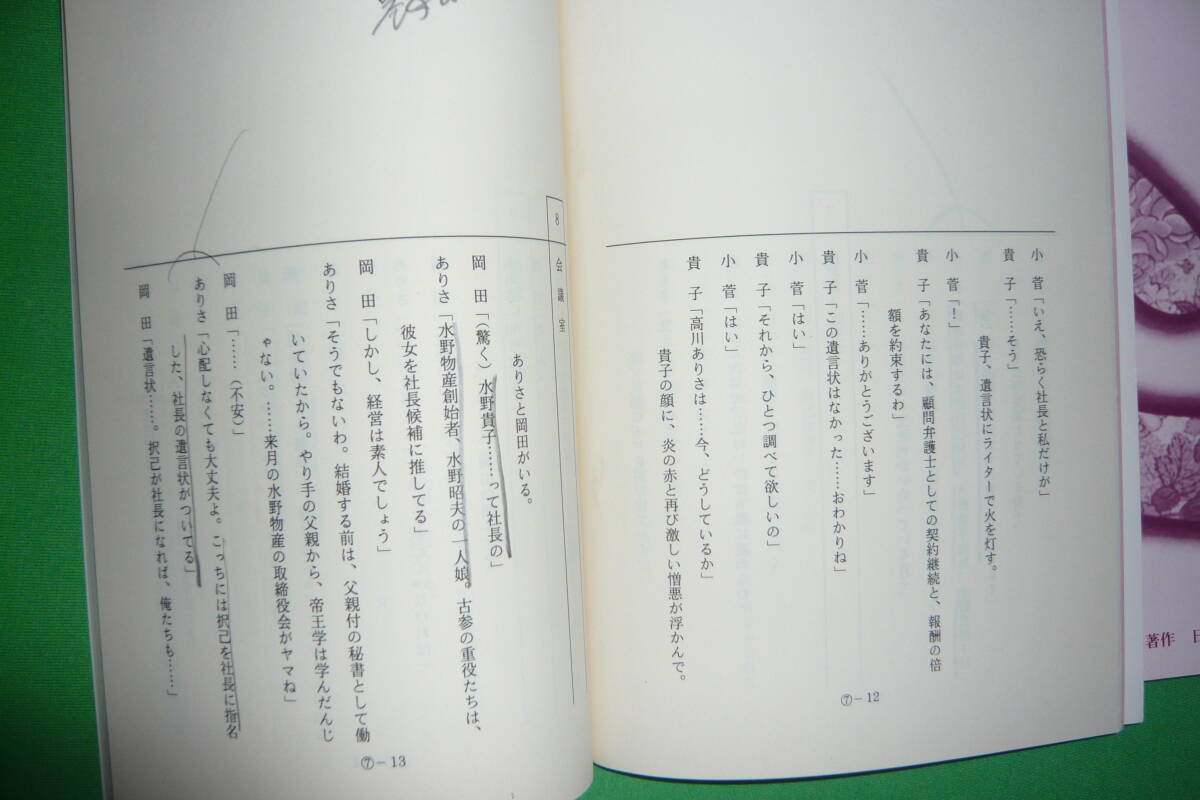 小　菅「いえ、恐らく社長と私だけが」
貴　子「……そう」
貴子、遺言状にライターで火を灯す。
小　菅「！」
貴　子「あなたには、顧問弁護士としての契約継続と、報酬の倍
額を約束するわ」
小　菅「……ありがとうございます」
貴　子「この遺言状はなかった……おわかりね」
小　菅「はい」
貴　子「それから、ひとつ調べて欲しいの」
小　菅「はい」
貴　子「高川ありさは……今、どうしているか」
貴子の顔に、炎の赤と再び激しい憎悪が浮かんで。
⑦－12
8　会議室
ありさと岡田がいる。
岡　田「（驚く）水野貴子……って社長の」
ありさ「水野物産創始者、水野昭夫の一人娘。古参の重役たちは、
彼女を社長候補に推してる」
岡　田「しかし、経営は素人でしょう」
ありさ「そうでもないわ。結婚する前は、父親付の秘書として働
いていたから。やり手の父親から、帝王学は学んだんじ
ゃない。……来月の水野物産の取締役会がヤマね」
岡　田「……（不安）」
ありさ「心配しなくても大丈夫よ。こっちには択己を社長に指名
した、社長の遺言状がついてる」
岡　田「遺言状……。択己が社長になれば、俺たちも……」
⑦－13
著作